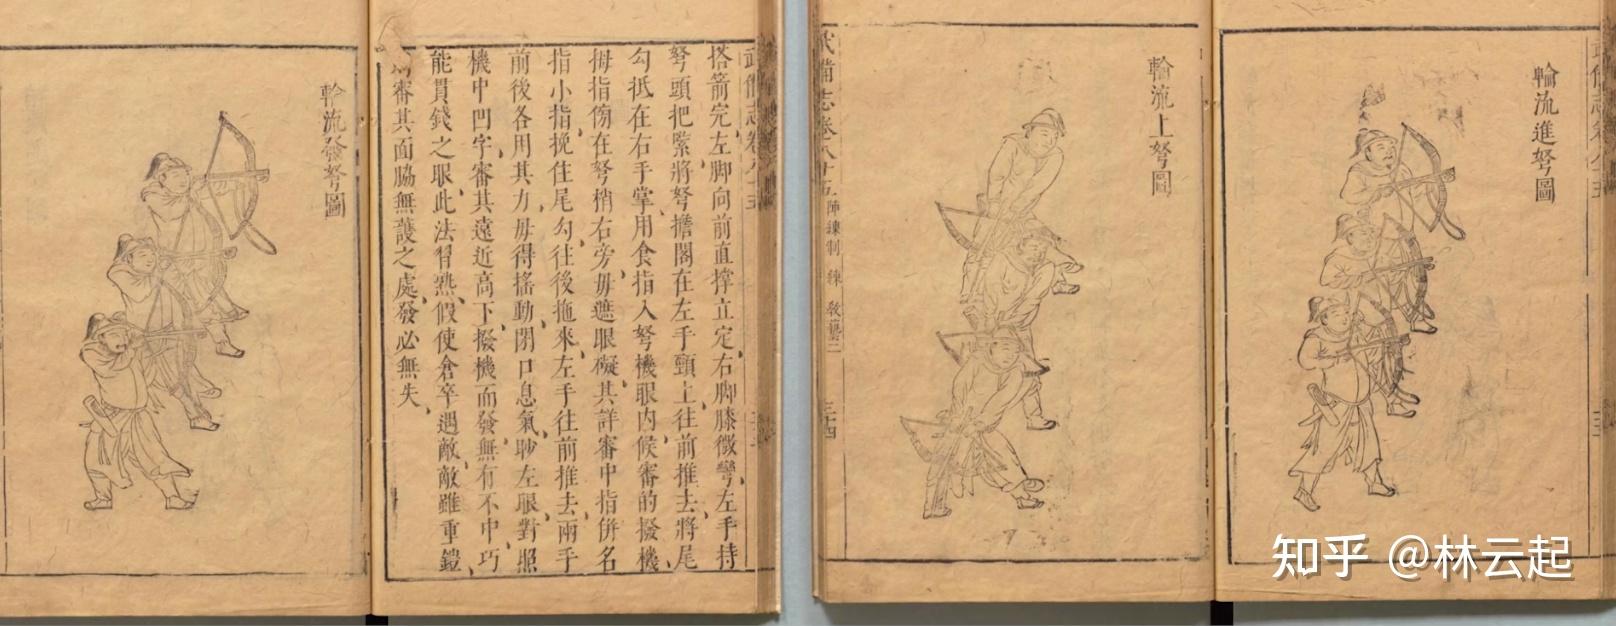 輪流進弩圖
輪流上弩圖
武備志卷八十五 陣練制 練 教藝二 三十四
搭箭完、左脚向前直撑立定、右脚膝微彎、左手持
弩頭把緊、將弩擔閣在左手頸上、往前推去、將尾
勾抵在右手掌、用食指入弩機眼内、候審的撥機、
拇指傍在弩梢右旁、毋遮眼礙其詳審、中指併名
指小指、挽住尾勾、往後拖來、左手往前推去、兩手
前後各用其力、毋得搖動、閉口息氣、眇左眼、對照
機中凹字、審其遠近高下、撥機而發、無有不中、巧
能貫錢之眼、此法習熟、假使倉卒遇敵、敵雖重鎧、
審其面脇無護之處、發必無失、
輪流發弩圖
知乎 @林云起